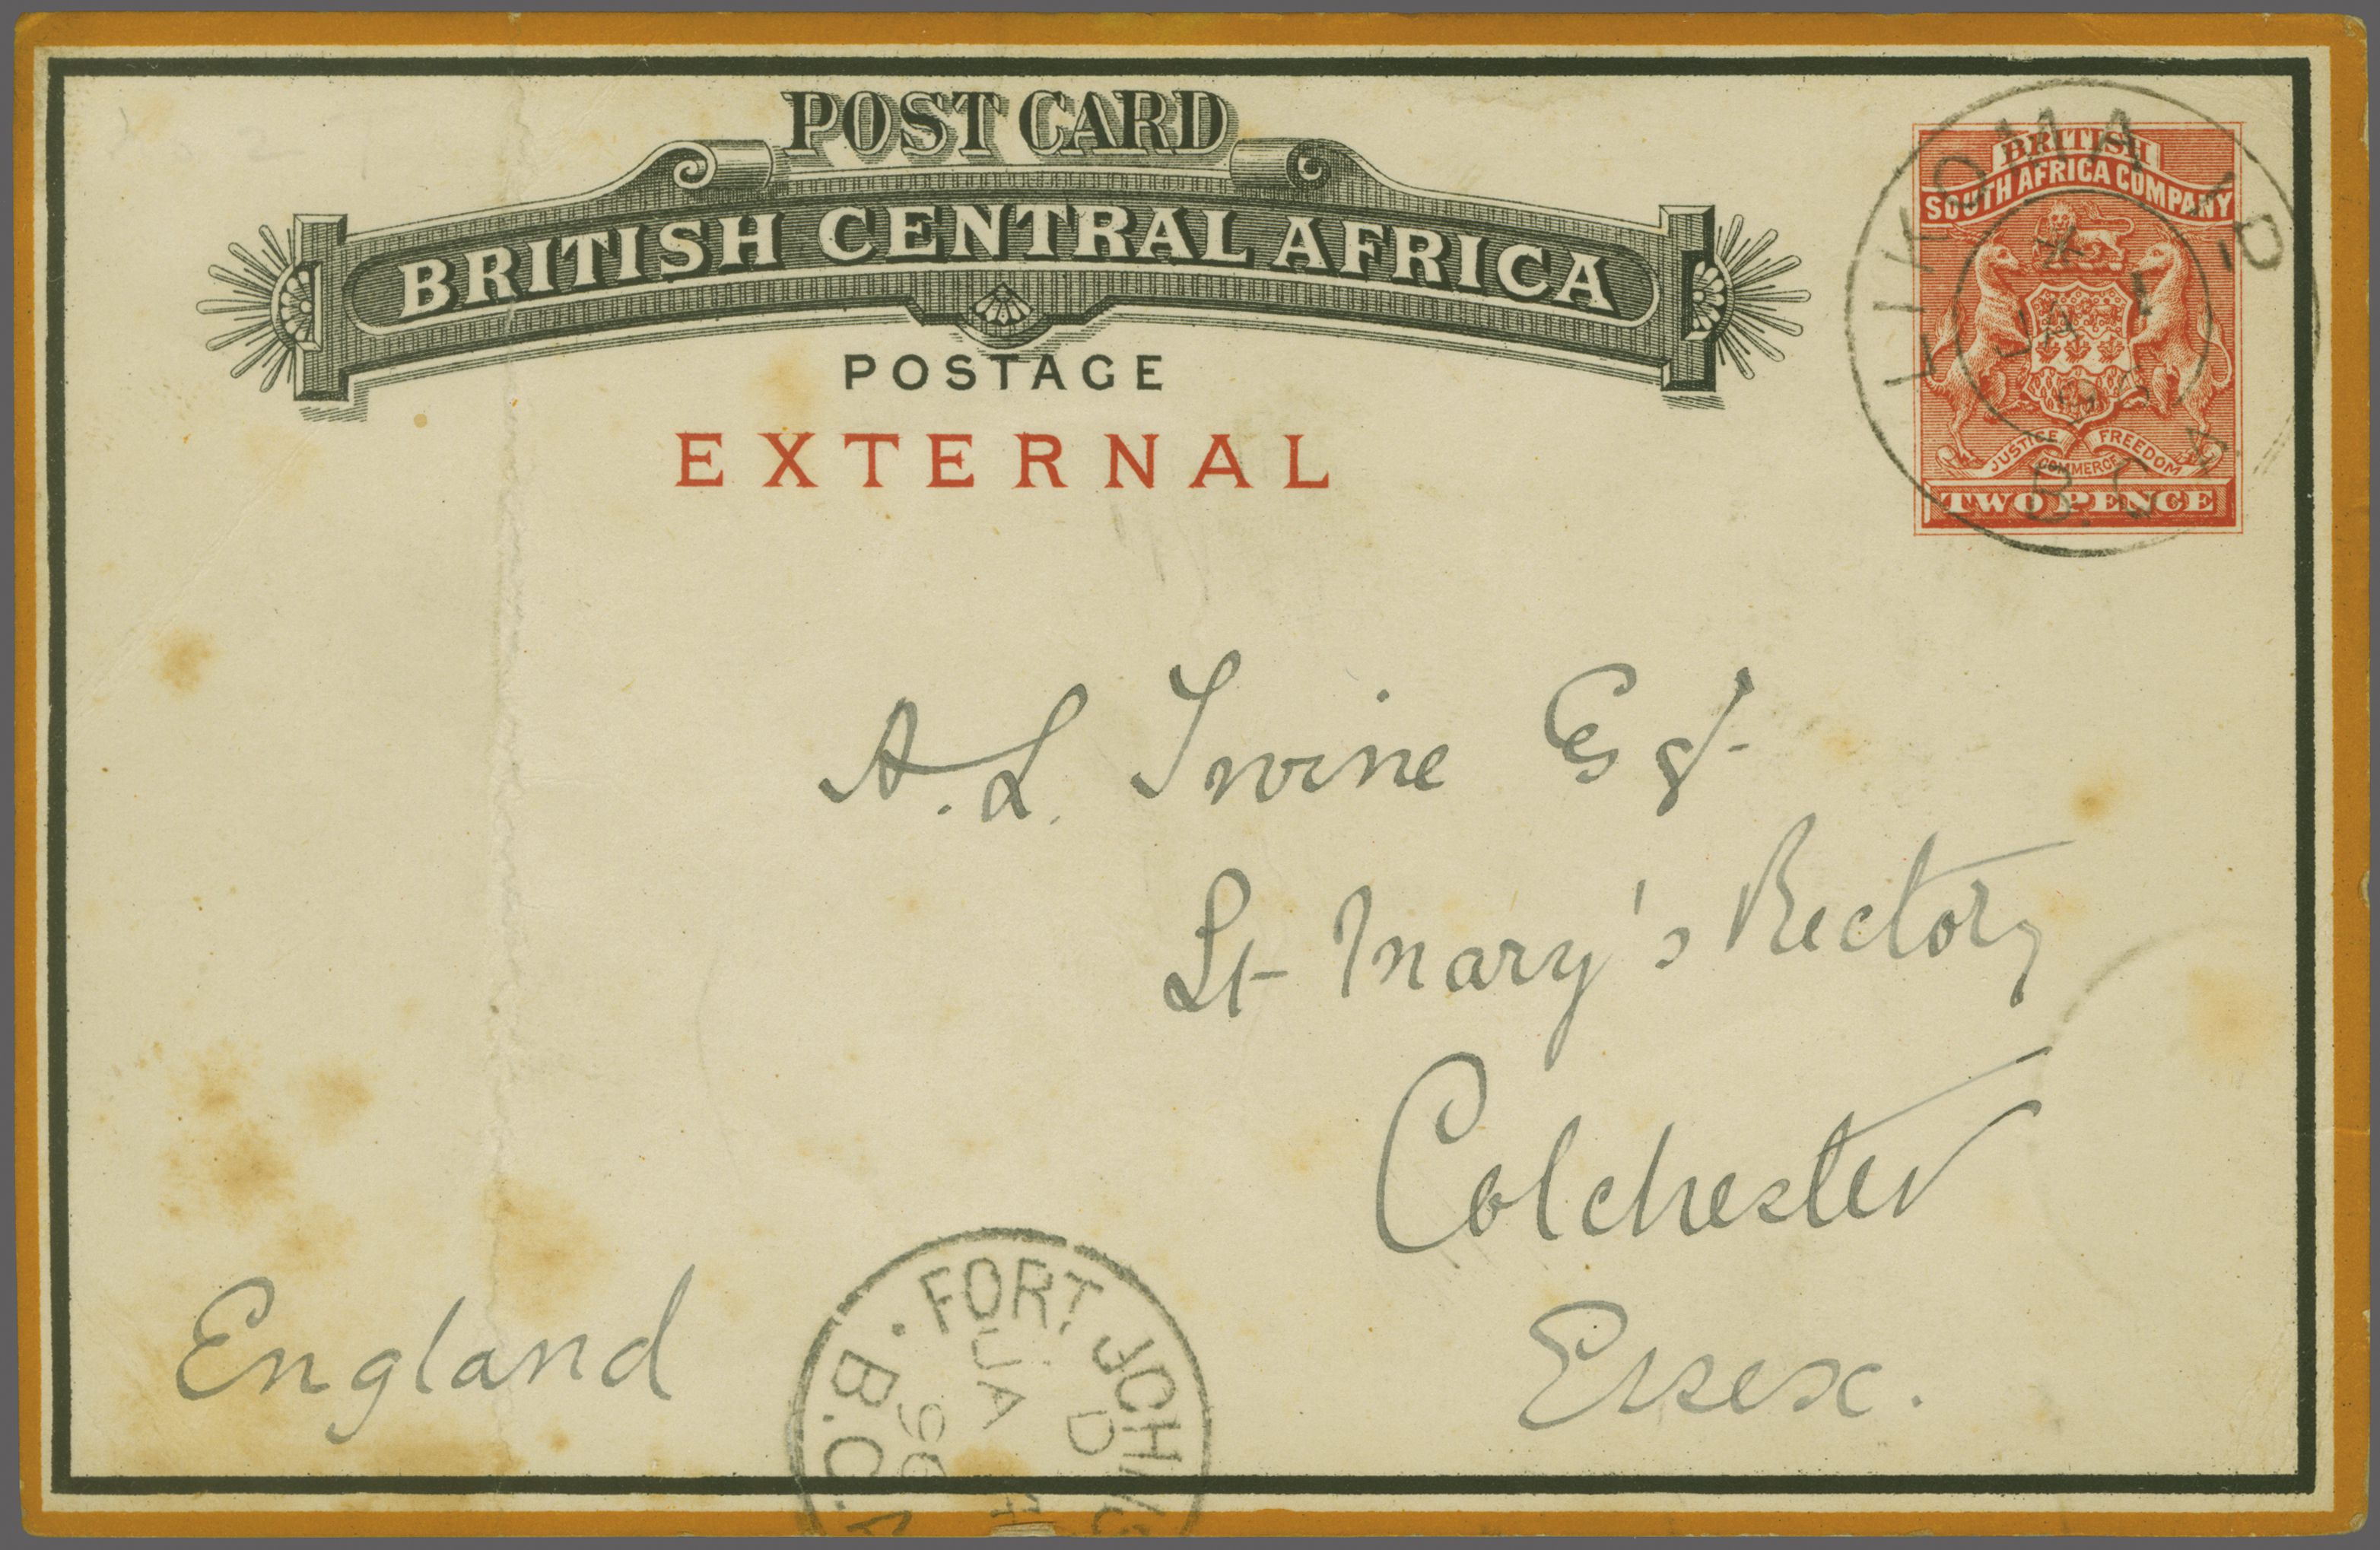 POST CARD
BRITISH CENTRAL AFRICA
POSTAGE
EXTERNAL
BRITISH
SOUTH AFRICA COMPANY
JUSTICE FREEDOM
COMMERCE
TWO PENCE
LIKOMA
JA 1
B.C.A
A. L. Irvine Esqr
St Mary's Rectory
Colchester
Essex.
England
FORT JOHNS
D
JA 4
96
B.C.A